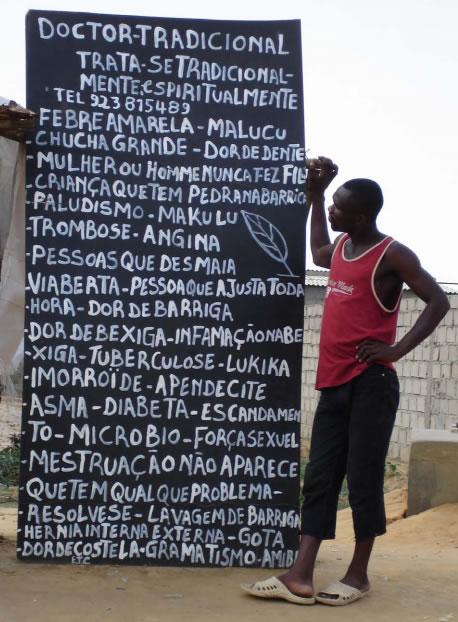 DOCTOR-TRADICIONAL
TRATA-SE TRADICIONAL-
MENTE, ESPIRITUALMENTE
TEL 923 815489
FEBRE AMARELA-MALUCU
CHUCHA GRANDE-DOR DE DENTE
-MULHER OU HOMME NUNCA FEZ FIL
-CRIANÇA QUE TEM PEDRA NA BARRIG
-PALUDISMO-MAKULU
TROMBOSE-ANGINA
-PESSOAS QUE DESMAIA
-VIABERTA-PESSOA QUE AJUSTA TODA
HORA-DOR DE BARRIGA
-DOR DE BEXIGA-INFAMAÇÃO NA BE
-XIGA-TUBERCULOSE-LUKIKA
-IMORROÏDE-APENDECITE
ASMA-DIABETA-ESCANDAMEN
TO-MICROBIO-FORÇA SEXUEL
-MESTRUAÇÃO NÃO APARECE
QUE TEM QUALQUE PROBLEMA-
-RESOLVESE-LAVAGEM DE BARRIGA
HERNIA INTERNA EXTERNA-GOTA
DOR DE COSTELA-GRAMATISMO-AMIB
ETC